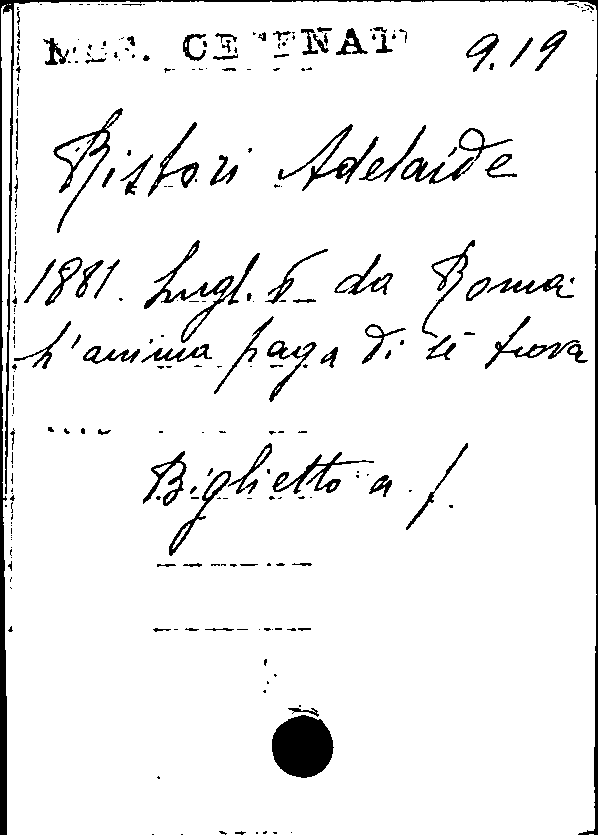 MSS. CETENAT 9.19
Ristori Adelaide
1881. Lugl. 6 da Roma
L'anima paga di sè trova
....
Biglietto a. f.